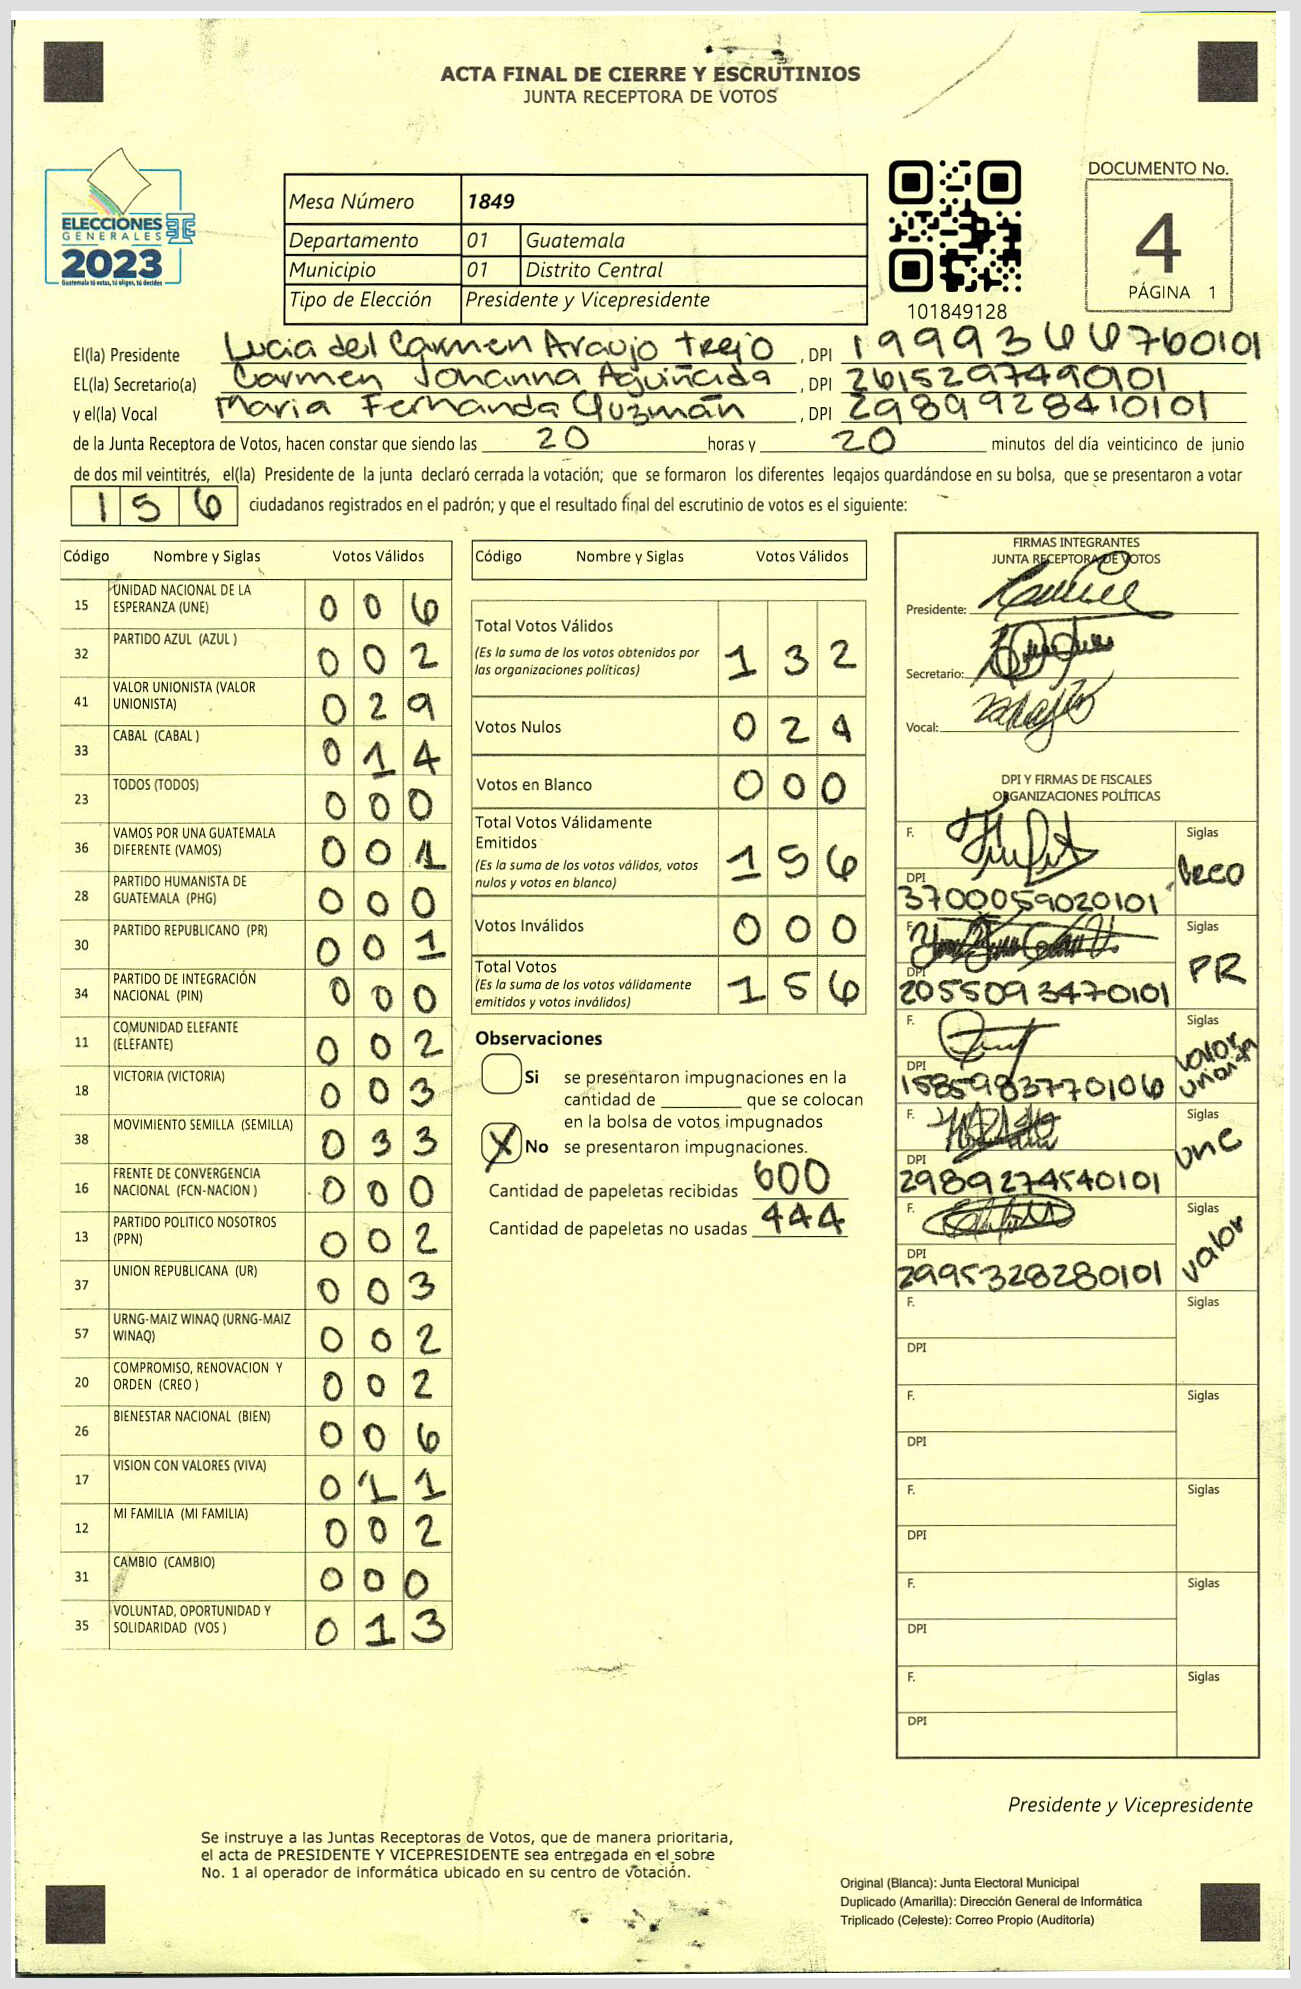 ACTA FINAL DE CIERRE Y ESCRUTINIOS
JUNTA RECEPTORA DE VOTOS
ELECCIONES
GENERALES
2023
Guatemala tú votas, tú eliges, tú decides
Mesa Número 1849
Departamento 01 Guatemala
Municipio 01 Distrito Central
Tipo de Elección Presidente y Vicepresidente
101849128
DOCUMENTO No.
4
PÁGINA 1
El(la) Presidente Lucia del Carmen Araujo Trejo, DPI 1999366760101
EL(la) Secretario(a) Carmen Johanna Aguiñada, DPI 2615297490101
y el(la) Vocal Maria Fernanda Guzmán, DPI 2989928410101
de la Junta Receptora de Votos, hacen constar que siendo las 20 horas y 20 minutos del día veinticinco de junio
de dos mil veintitrés, el(la) Presidente de la junta declaró cerrada la votación; que se formaron los diferentes legajos guardándose en su bolsa, que se presentaron a votar
156 ciudadanos registrados en el padrón; y que el resultado final del escrutinio de votos es el siguiente:
Código Nombre y Siglas Votos Válidos
15 UNIDAD NACIONAL DE LA
ESPERANZA (UNE) 006
32 PARTIDO AZUL (AZUL ) 002
41 VALOR UNIONISTA (VALOR
UNIONISTA) 029
33 CABAL (CABAL ) 014
23 TODOS (TODOS) 000
36 VAMOS POR UNA GUATEMALA
DIFERENTE (VAMOS) 001
28 PARTIDO HUMANISTA DE
GUATEMALA (PHG) 000
30 PARTIDO REPUBLICANO (PR) 001
34 PARTIDO DE INTEGRACIÓN
NACIONAL (PIN) 000
11 COMUNIDAD ELEFANTE
(ELEFANTE) 002
18 VICTORIA (VICTORIA) 003
38 MOVIMIENTO SEMILLA (SEMILLA) 033
16 FRENTE DE CONVERGENCIA
NACIONAL (FCN-NACION ) 000
13 PARTIDO POLITICO NOSOTROS
(PPN) 002
37 UNION REPUBLICANA (UR) 003
57 URNG-MAIZ WINAQ (URNG-MAIZ
WINAQ) 002
20 COMPROMISO, RENOVACION Y
ORDEN (CREO ) 002
26 BIENESTAR NACIONAL (BIEN) 006
17 VISION CON VALORES (VIVA) 011
12 MI FAMILIA (MI FAMILIA) 002
31 CAMBIO (CAMBIO) 000
35 VOLUNTAD, OPORTUNIDAD Y
SOLIDARIDAD (VOS ) 013
Código Nombre y Siglas Votos Válidos
Total Votos Válidos
(Es la suma de los votos obtenidos por
las organizaciones políticas) 132
Votos Nulos 024
Votos en Blanco 000
Total Votos Válidamente
Emitidos
(Es la suma de los votos válidos, votos
nulos y votos en blanco) 156
Votos Inválidos 000
Total Votos
(Es la suma de los votos válidamente
emitidos y votos inválidos) 156
Observaciones
Si se presentaron impugnaciones en la
cantidad de ________ que se colocan
en la bolsa de votos impugnados
X No se presentaron impugnaciones.
Cantidad de papeletas recibidas 600
Cantidad de papeletas no usadas 444
FIRMAS INTEGRANTES
JUNTA RECEPTORA DE VOTOS
Presidente:
Secretario:
Vocal:
DPI Y FIRMAS DE FISCALES
ORGANIZACIONES POLÍTICAS
F. Siglas
DPI
3700059020101
F. Siglas
PR
DPI
2055093470101
F. Siglas
valor
unionista
DPI
1585983770106
F. Siglas
une
DPI
2989274540101
F. Siglas
valor
DPI
2995328280101
F. Siglas
DPI
F. Siglas
DPI
F. Siglas
DPI
F. Siglas
DPI
F. Siglas
DPI
Presidente y Vicepresidente
Se instruye a las Juntas Receptoras de Votos, que de manera prioritaria,
el acta de PRESIDENTE Y VICEPRESIDENTE sea entregada en el sobre
No. 1 al operador de informática ubicado en su centro de votación.
Original (Blanca): Junta Electoral Municipal
Duplicado (Amarilla): Dirección General de Informática
Triplicado (Celeste): Correo Propio (Auditoría)